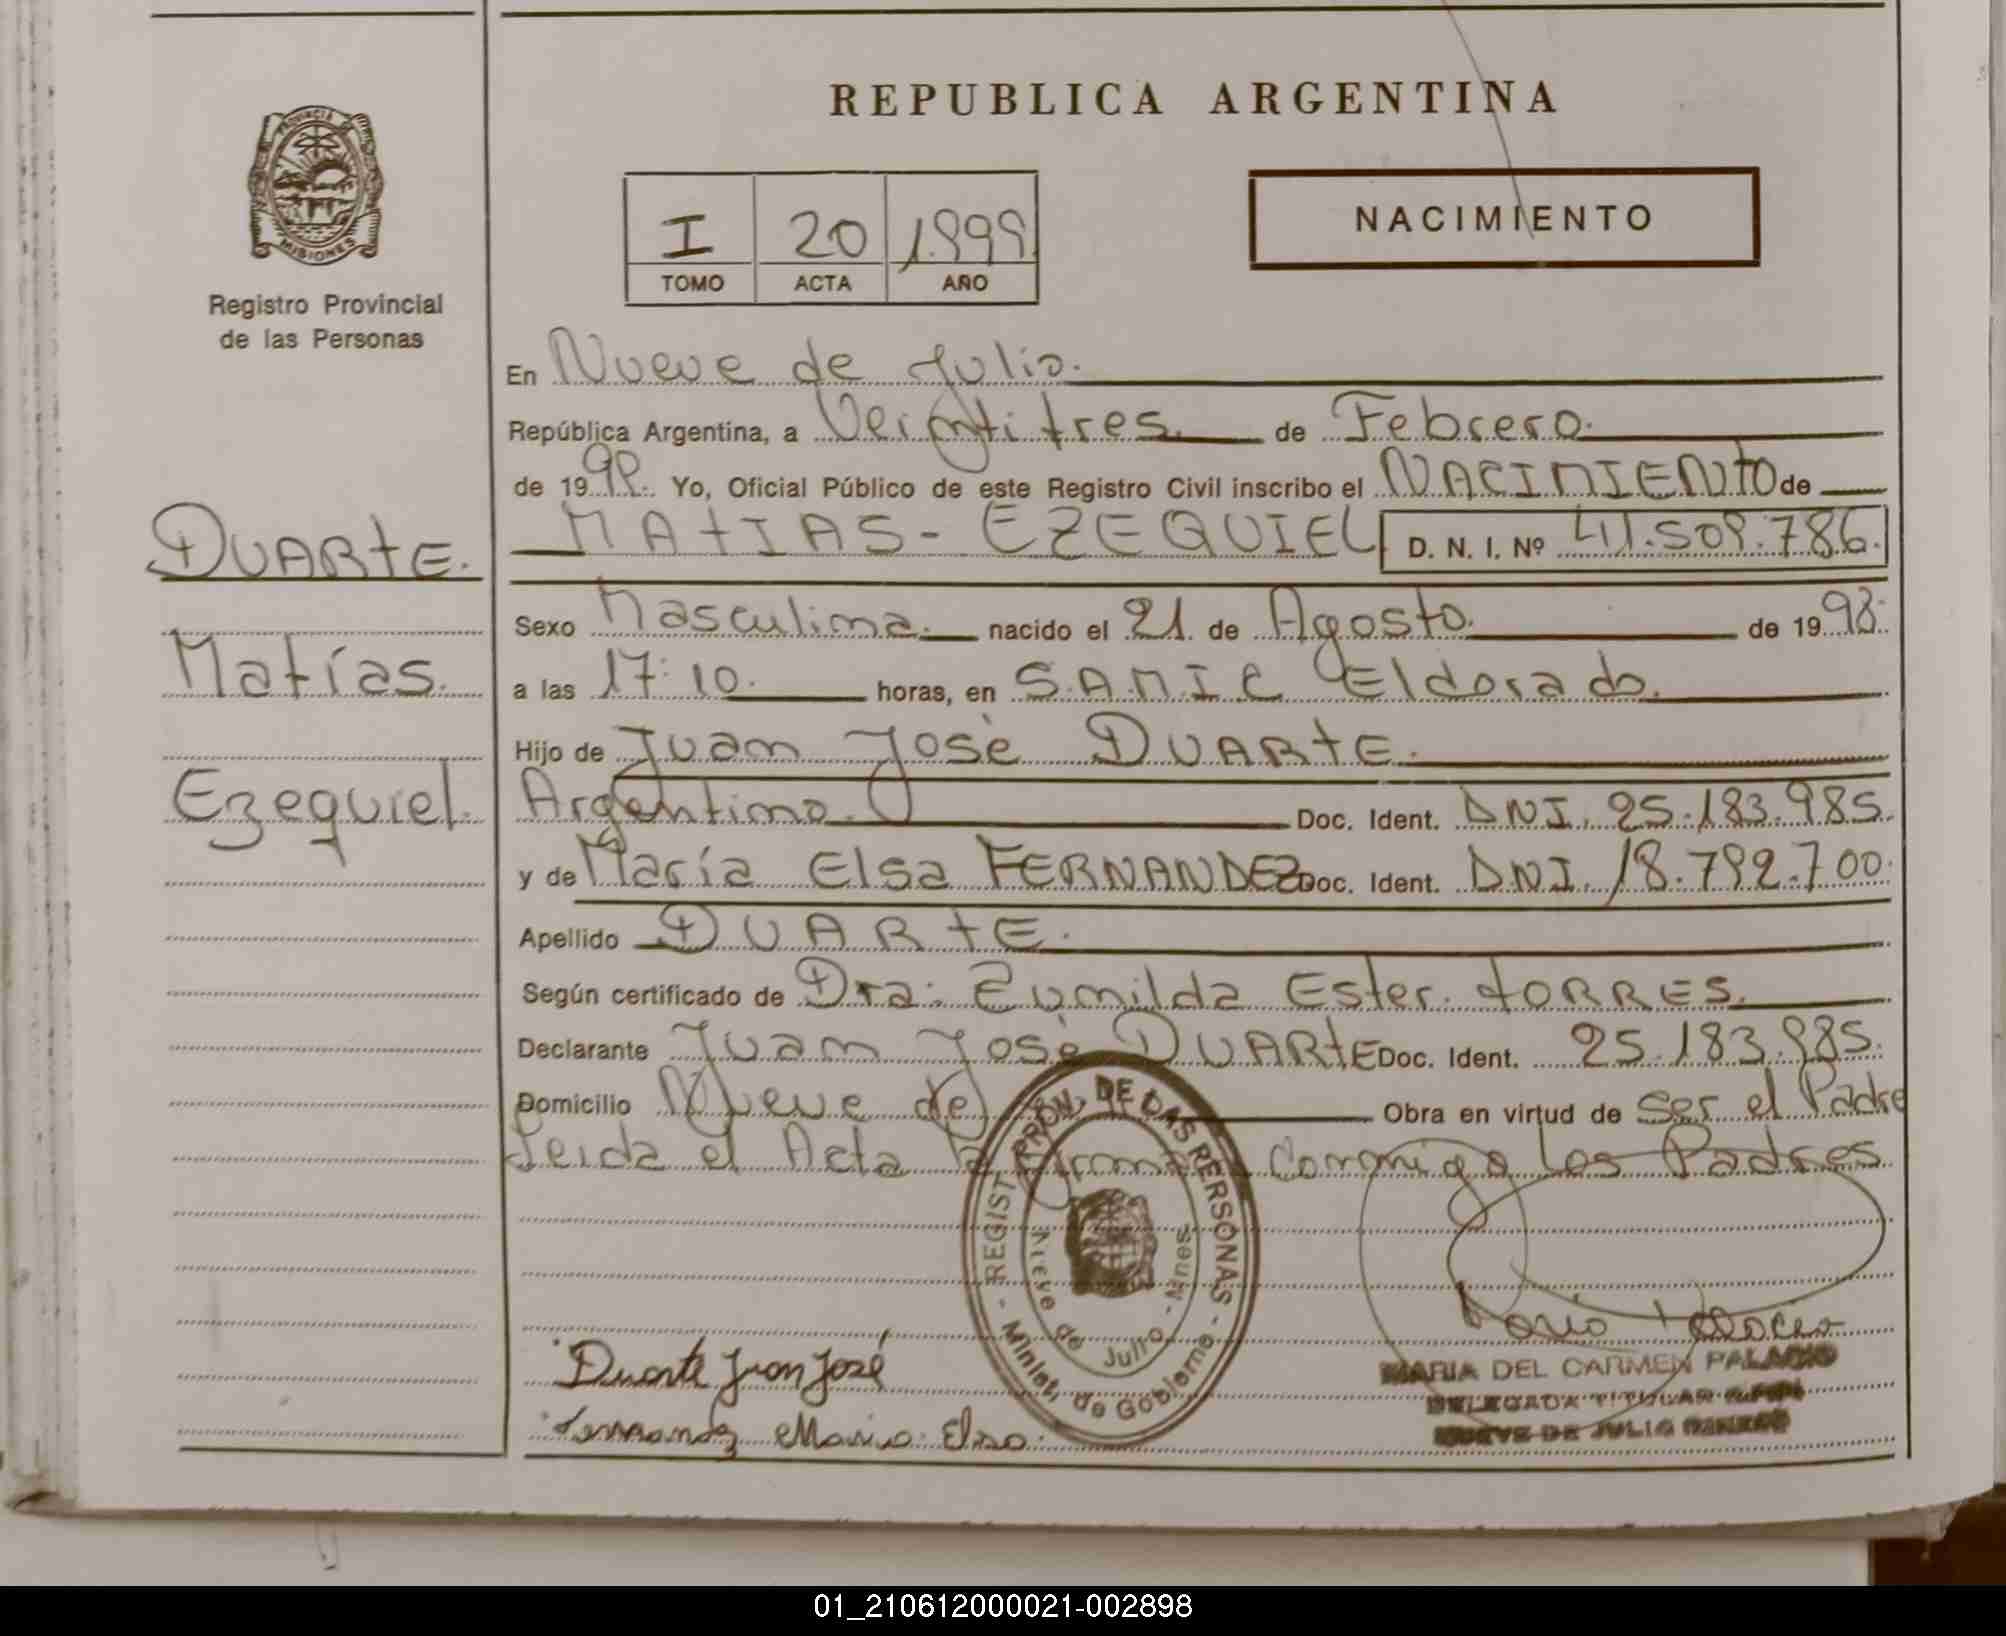 PROVINCIA
MISIONES
Registro Provincial
de las Personas
DUARTE.
Matías.
Ezequiel.
REPUBLICA ARGENTINA
I 20 1.999.
TOMO ACTA AÑO
NACIMIENTO
En Nueve de Julio.
República Argentina, a Veintitres. de Febrero.
de 1999. Yo, Oficial Público de este Registro Civil inscribo el NACIMIENTO de
MATIAS - EZEQUIEL D. N. I. Nº 41.509.786.
Sexo Masculino. nacido el 21. de Agosto. de 1998.
a las 17:10. horas, en S.A.M.I.C Eldorado.
Hijo de Juan José DUARTE.
Argentino. Doc. Ident. DNI. 25.183.985.
y de María Elsa FERNANDEZ Doc. Ident. DNI. 18.792.700.
Apellido DUARTE.
Según certificado de Dra. Zunilda Ester TORRES.
Declarante Juan José DUARTE Doc. Ident. 25.183.985.
Domicilio Nueve de Obra en virtud de Ser el Padre
Leida el Acta la firman conmigo los Padres
REGIST. PROV. DE LAS PERSONAS - Minist. de Gobierno -
Nueve de Julio - Mnes.
Duarte Juan José
Fernandez Maria Elsa.
MARIA DEL CARMEN PALACIO
DELEGADA TITULAR
NUEVE DE JULIO
01_210612000021-002898